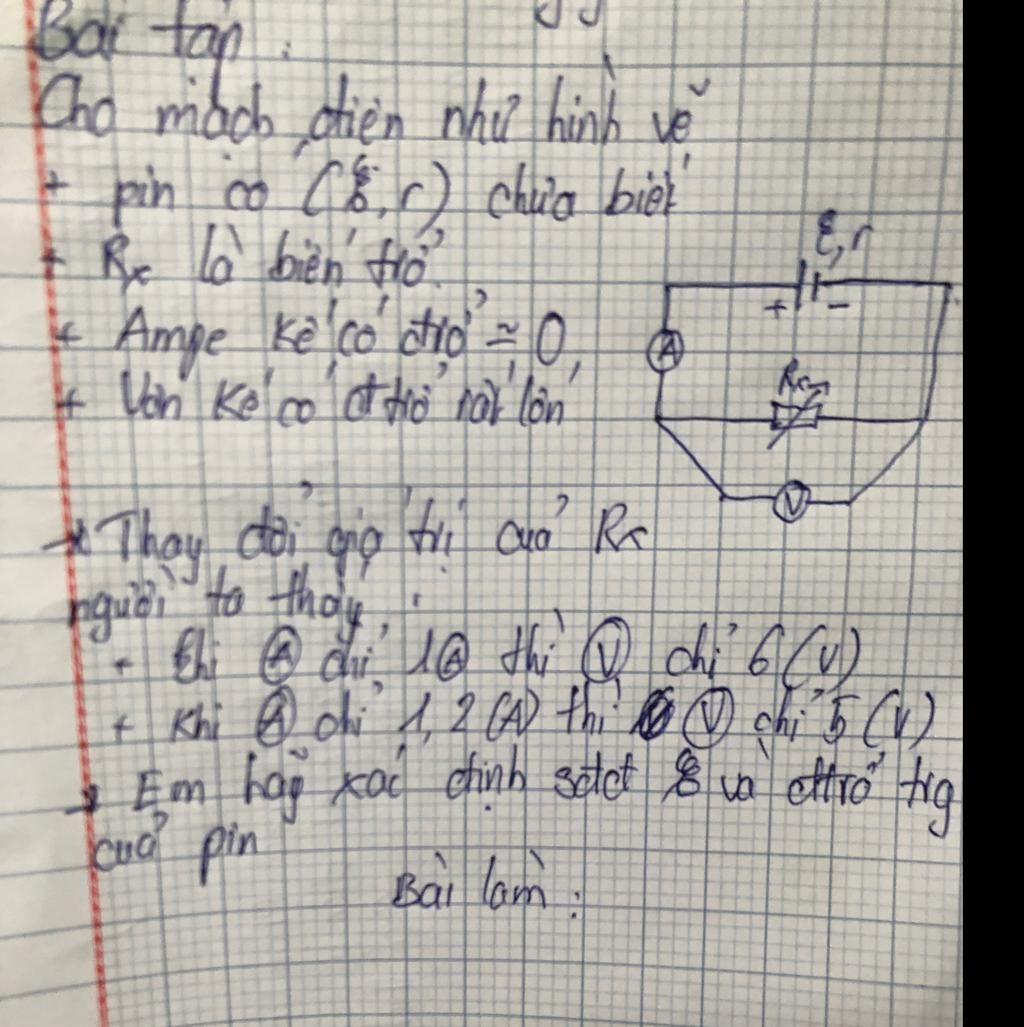 Bài tập :
Cho mạch điện như hình vẽ
+ pin có (ξ, r) chưa biết
ξ, r
+ Rx là biến trở.
+ -
+ Ampe kế có đtrở ≈ 0,
A
Rx
+ Vôn kế có đtrở rất lớn
V
→ Thay đổi giá trị của Rx
người ta thấy :
+ Khi Ⓐ chỉ 1Ⓐ thì Ⓥ chỉ 6 (V)
+ Khi Ⓐ chỉ 1,2 (A) thì Ⓥ chỉ 5 (V)
→ Em hãy xác định sđđ ξ và đttrở trg
của pin
Bài làm :